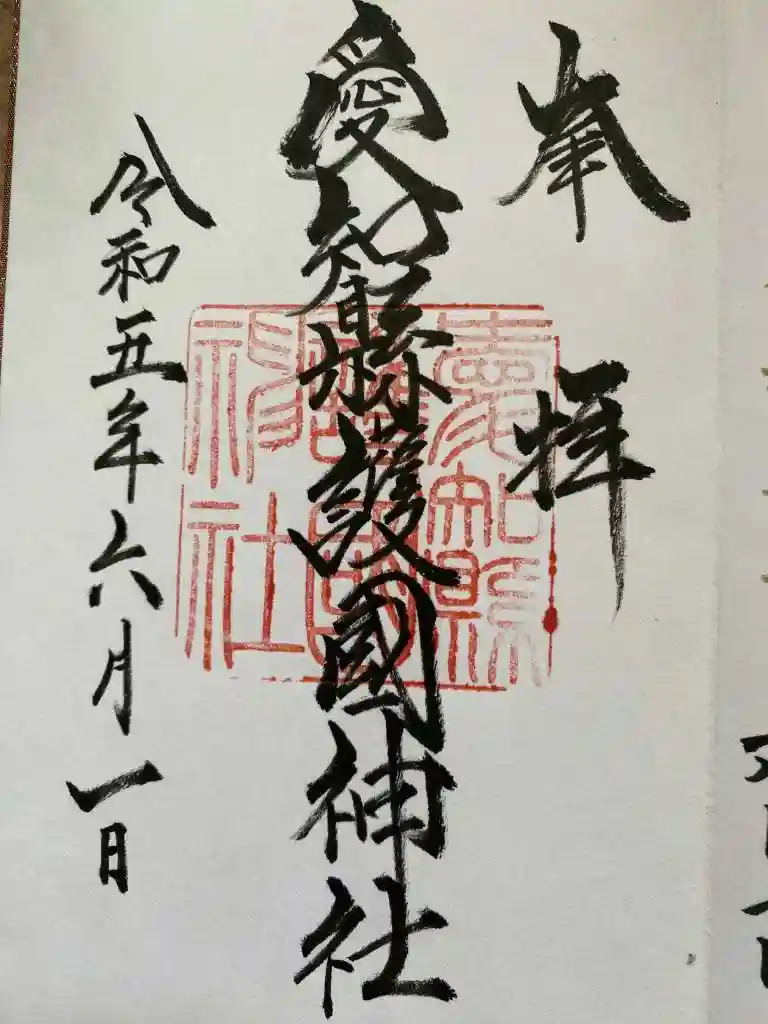 奉拝
愛知縣護國神社
愛知縣
護國
神社
令和五年六月一日